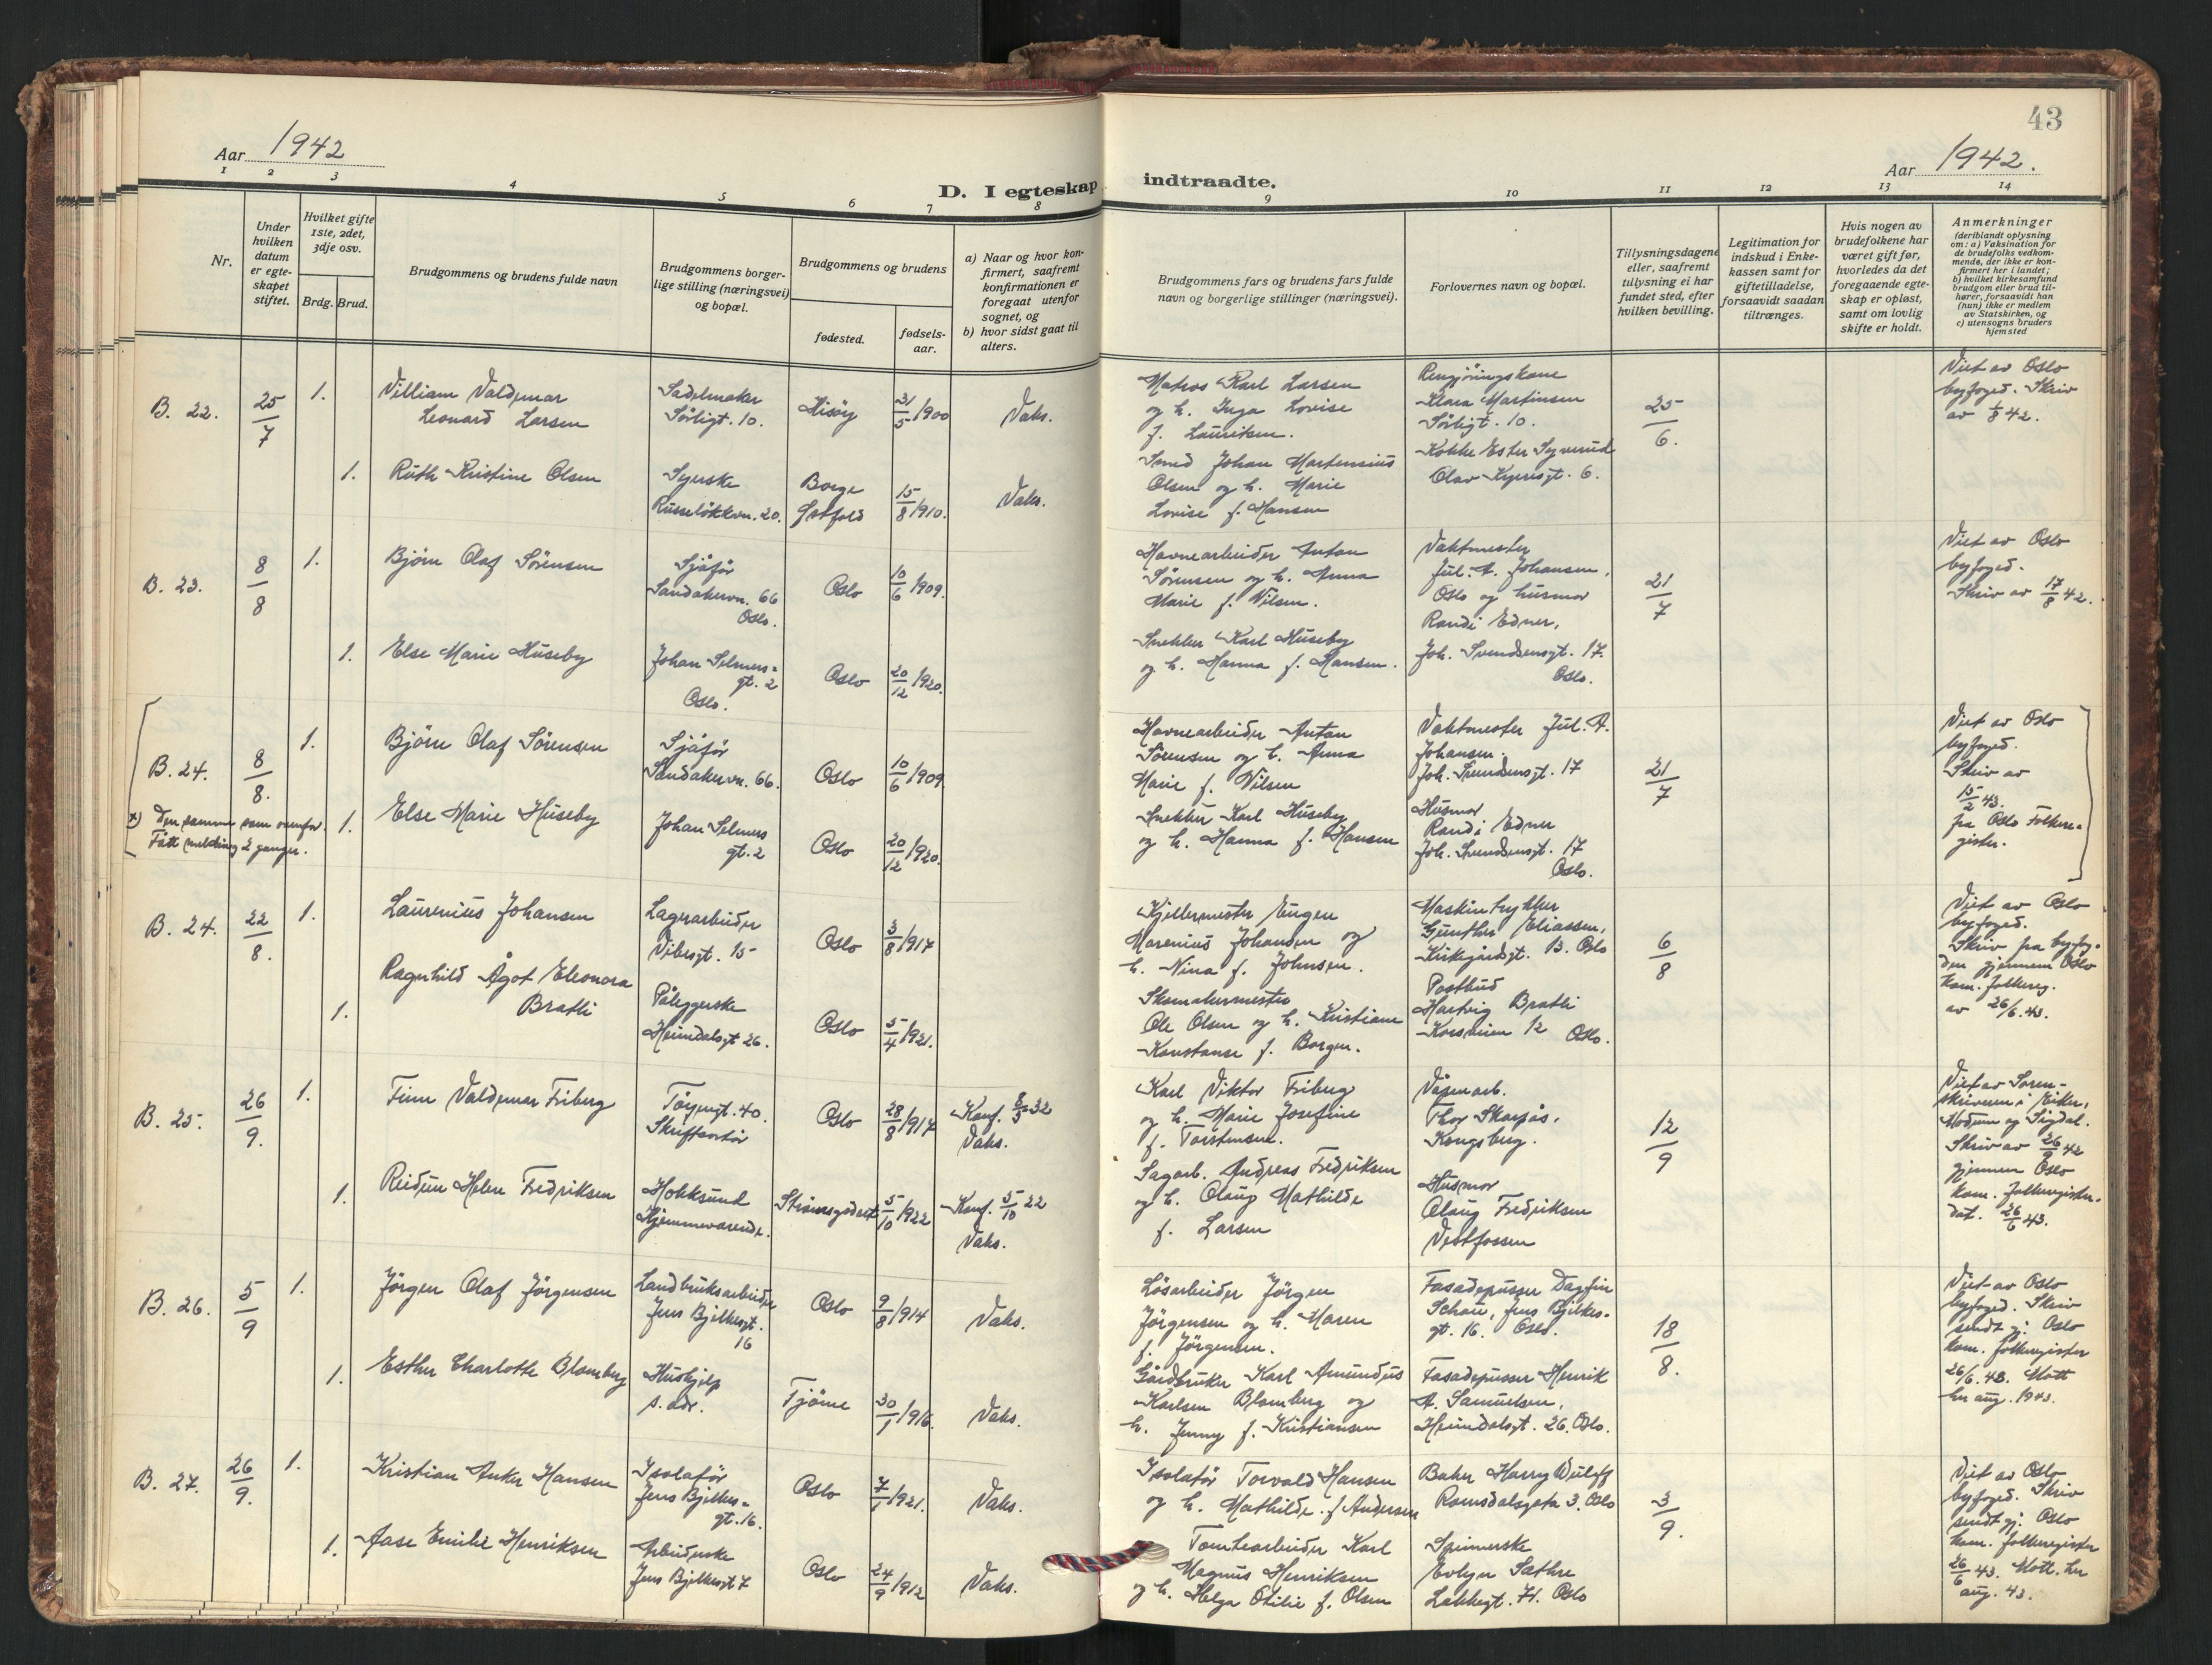 43
Aar 1942
D. I egteskap indtraadte.
Aar 1942.
1 2 3 4 5 6 7 8 9 10 11 12 13 14
Nr.
Under hvilken datum er egte- skapet stiftet.
Hvilket gifte 1ste, 2det, 3dje osv.
Brdg. Brud.
Brudgommens og brudens fulde navn
Brudgommens borger- lige stilling (næringsvei) og bopæl.
Brudgommens og brudens
fødested.
fødsels- aar.
a) Naar og hvor kon- firmert, saafremt konfirmationen er foregaat utenfor sognet, og
b) hvor sidst gaat til alters.
Brudgommens fars og brudens fars fulde navn og borgerlige stillinger (næringsvei).
Forlovernes navn og bopæl.
Tillysningsdagene eller, saafremt tillysning ei har fundet sted, efter hvilken bevilling.
Legitimation for indskud i Enke- kassen samt for giftetilladelse, forsaavidt saadan tiltrænges.
Hvis nogen av brudefolkene har været gift før, hvorledes da det foregaaende egte- skap er opløst, samt om lovlig skifte er holdt.
Anmerkninger
(deriblandt oplysning om: a) Vaksination for de brudefolks vedkom- mende, der ikke er kon- firmert her i landet; b) hvilket kirkesamfund brudgom eller brud til- hører, forsaavidt han (hun) ikke er medlem av Statskirken, og c) utensogns bruders hjemsted
B. 22.
25/7
1.
Villiam Valdemar
Leonard Larsen
Sadelmaker
Sørligt. 10.
Hisøy
31/5 1900
Vaks.
Matros Karl Larsen
og h. Inga Lovise
f. Lauritsen.
Rengjøringskone
Klara Martinsen
Sørligt. 10.
25/6.
Viet av Oslo
byfoged. Skriv
av 1/8 42.
1.
Ruth Kristine Olsen
Syerske
Russeløkkvn. 20.
Borge
Østfold
15/8 1910.
Vaks.
Smed Johan Martensius
Olsen og h. Marie
Lovise f. Hansen
Kokke Ester Syverud
Olav Kyrresgt. 6.
B. 23.
8/8
1.
Bjørn Olaf Sörensen
Sjåfør
Sandakervn. 66
Oslo.
Oslo
10/6 1909.
Havnearbeider Anton
Sørensen og h. Anna
Marie f. Nilsen.
Vaktmester
Jul. A. Johansen,
Oslo og husmor
Randi Edner,
Joh. Svendsensgt. 17.
Oslo.
21/7
Viet av Oslo
byfoged.
Skriv av 17/8 42.
1.
Else Marie Huseby
Johan Selmers-
gt. 2
Oslo.
Oslo
20/12 1920.
Snekker Karl Huseby
og h. Hanna f. Hansen.
B. 24.
8/8.
1.
Bjørn Olaf Sørensen
Sjåfør
Sandakervn. 66.
Oslo
10/6 1909
Havnearbeider Anton
Sørensen og h. Anna
Marie f. Nilsen
Vaktmester Jul. A.
Johansen.
Joh. Svendsensgt. 17
21/7
Viet av Oslo
byfoged.
Skriv av
15/2 43.
fra Oslo Folkere-
gister.
x) Den samme som ovenfor.
Fått melding 2 ganger.
1.
Else Marie Huseby
Johan Selmers
gt. 2
Oslo
20/12 1920.
Snekker Karl Huseby
og h. Hanna f. Hansen
Husmor
Randi Edner
Joh. Svendsensgt. 17
Oslo.
B. 24.
22/8.
1.
Laurenius Johansen
Lagerarbeider
Vibesgt. 15
Oslo
3/8 1917
Kjellermester Eugen
Marenius Johansen og
h. Nina f. Johnsen.
Maskintrykker
Gunther Eliassen,
Kirkegårdsgt. 13. Oslo
6/8
Viet av Oslo
byfoged.
Skriv fra byfog-
den gjennem Oslo
kom. folkereg.
av 26/6.43.
1.
Ragnhild Ågot Eleonora
Bratli
Påleggerske
Heimdalsgt 26.
Oslo
5/4 1921.
Skomakermester
Ole Olsen og h. Kristiane
Konstanse f. Borgen.
Postbud
Hartvig Bratli
Korsveien 12 Oslo.
B. 25.
26/9.
1.
Finn Valdemar Friberg
Tøyengt. 40.
Skriftsætør
Oslo
28/8 1917
Konf. 8/5 32
Vaks.
Karl Viktor Friberg
og h. Marie Josefine
f. Torstensen.
Våpenarb.
Thor Skarpås,
Kongsberg.
12/9
Viet av Soren-
skriveren i Eiker,
Modum og Sigdal.
Skriv av 26/9 42
gjennem Oslo
kom. folkeregister.
dat. 26/6 43.
1.
Reidun Helen Fredriksen
Hokksund
Hjemmeværende.
Strømsgodset
5/10 1922
Konf. 5/10 22
Vaks.
Sagarb. Andreas Fredriksen
og h. Olaug Mathilde
f. Larsen
Husmor
Olaug Fredriksen
Vestfossen
B. 26.
5/9
1.
Jørgen Olaf Jørgensen
Landbruksarbeider
Jens Bjelkesgt.
16
Oslo
9/8 1914
Vaks.
Løsarbeider Jørgen
Jørgensen og h. Maren
f. Jørgensen.
Fasadepusser Dagfin
Schau, Jens Bjelkes-
gt. 16. Oslo.
18/8.
Viet av Oslo
byfoged. Skriv
sendt gj. Oslo
kom. folkeregister
26/6.43. Mott
her aug. 1943.
1.
Esther Charlotte Blomberg
Hushjelp
s. adr.
Tjøme
30/1 1916.
Vaks.
Gårdbruker Karl Amundus
Karlsen Blomberg og
h. Jenny f. Kristiansen
Fasadepusser Henrik
A. Samuelsen,
Heimdalsgt. 26. Oslo.
B. 27.
26/9.
1.
Kristian Anker Hansen
Isolatør
Jens Bjelkes-
gt. 16.
Oslo
7/1 1921.
Vaks.
Isolatør Torvald Hansen
og h. Mathilde f. Andersen
Baker Harry Wulff
Romsdalsgata 3. Oslo
3/9.
Viet av Oslo
byfoged. Skriv
sendt gj. Oslo
kom. folkeregister
26/6 43. Mott. her
aug. 43.
1.
Aase Emilie Henriksen
Arbeiderske
Jens Bjelkesgt 7
Oslo
24/9 1912
Vaks.
Tomtearbeider Karl
Magnus Henriksen
og h. Helga Otilie f. Olsen
Spinnerske
Evlyn Sathre
Lakkegt. 71. Oslo